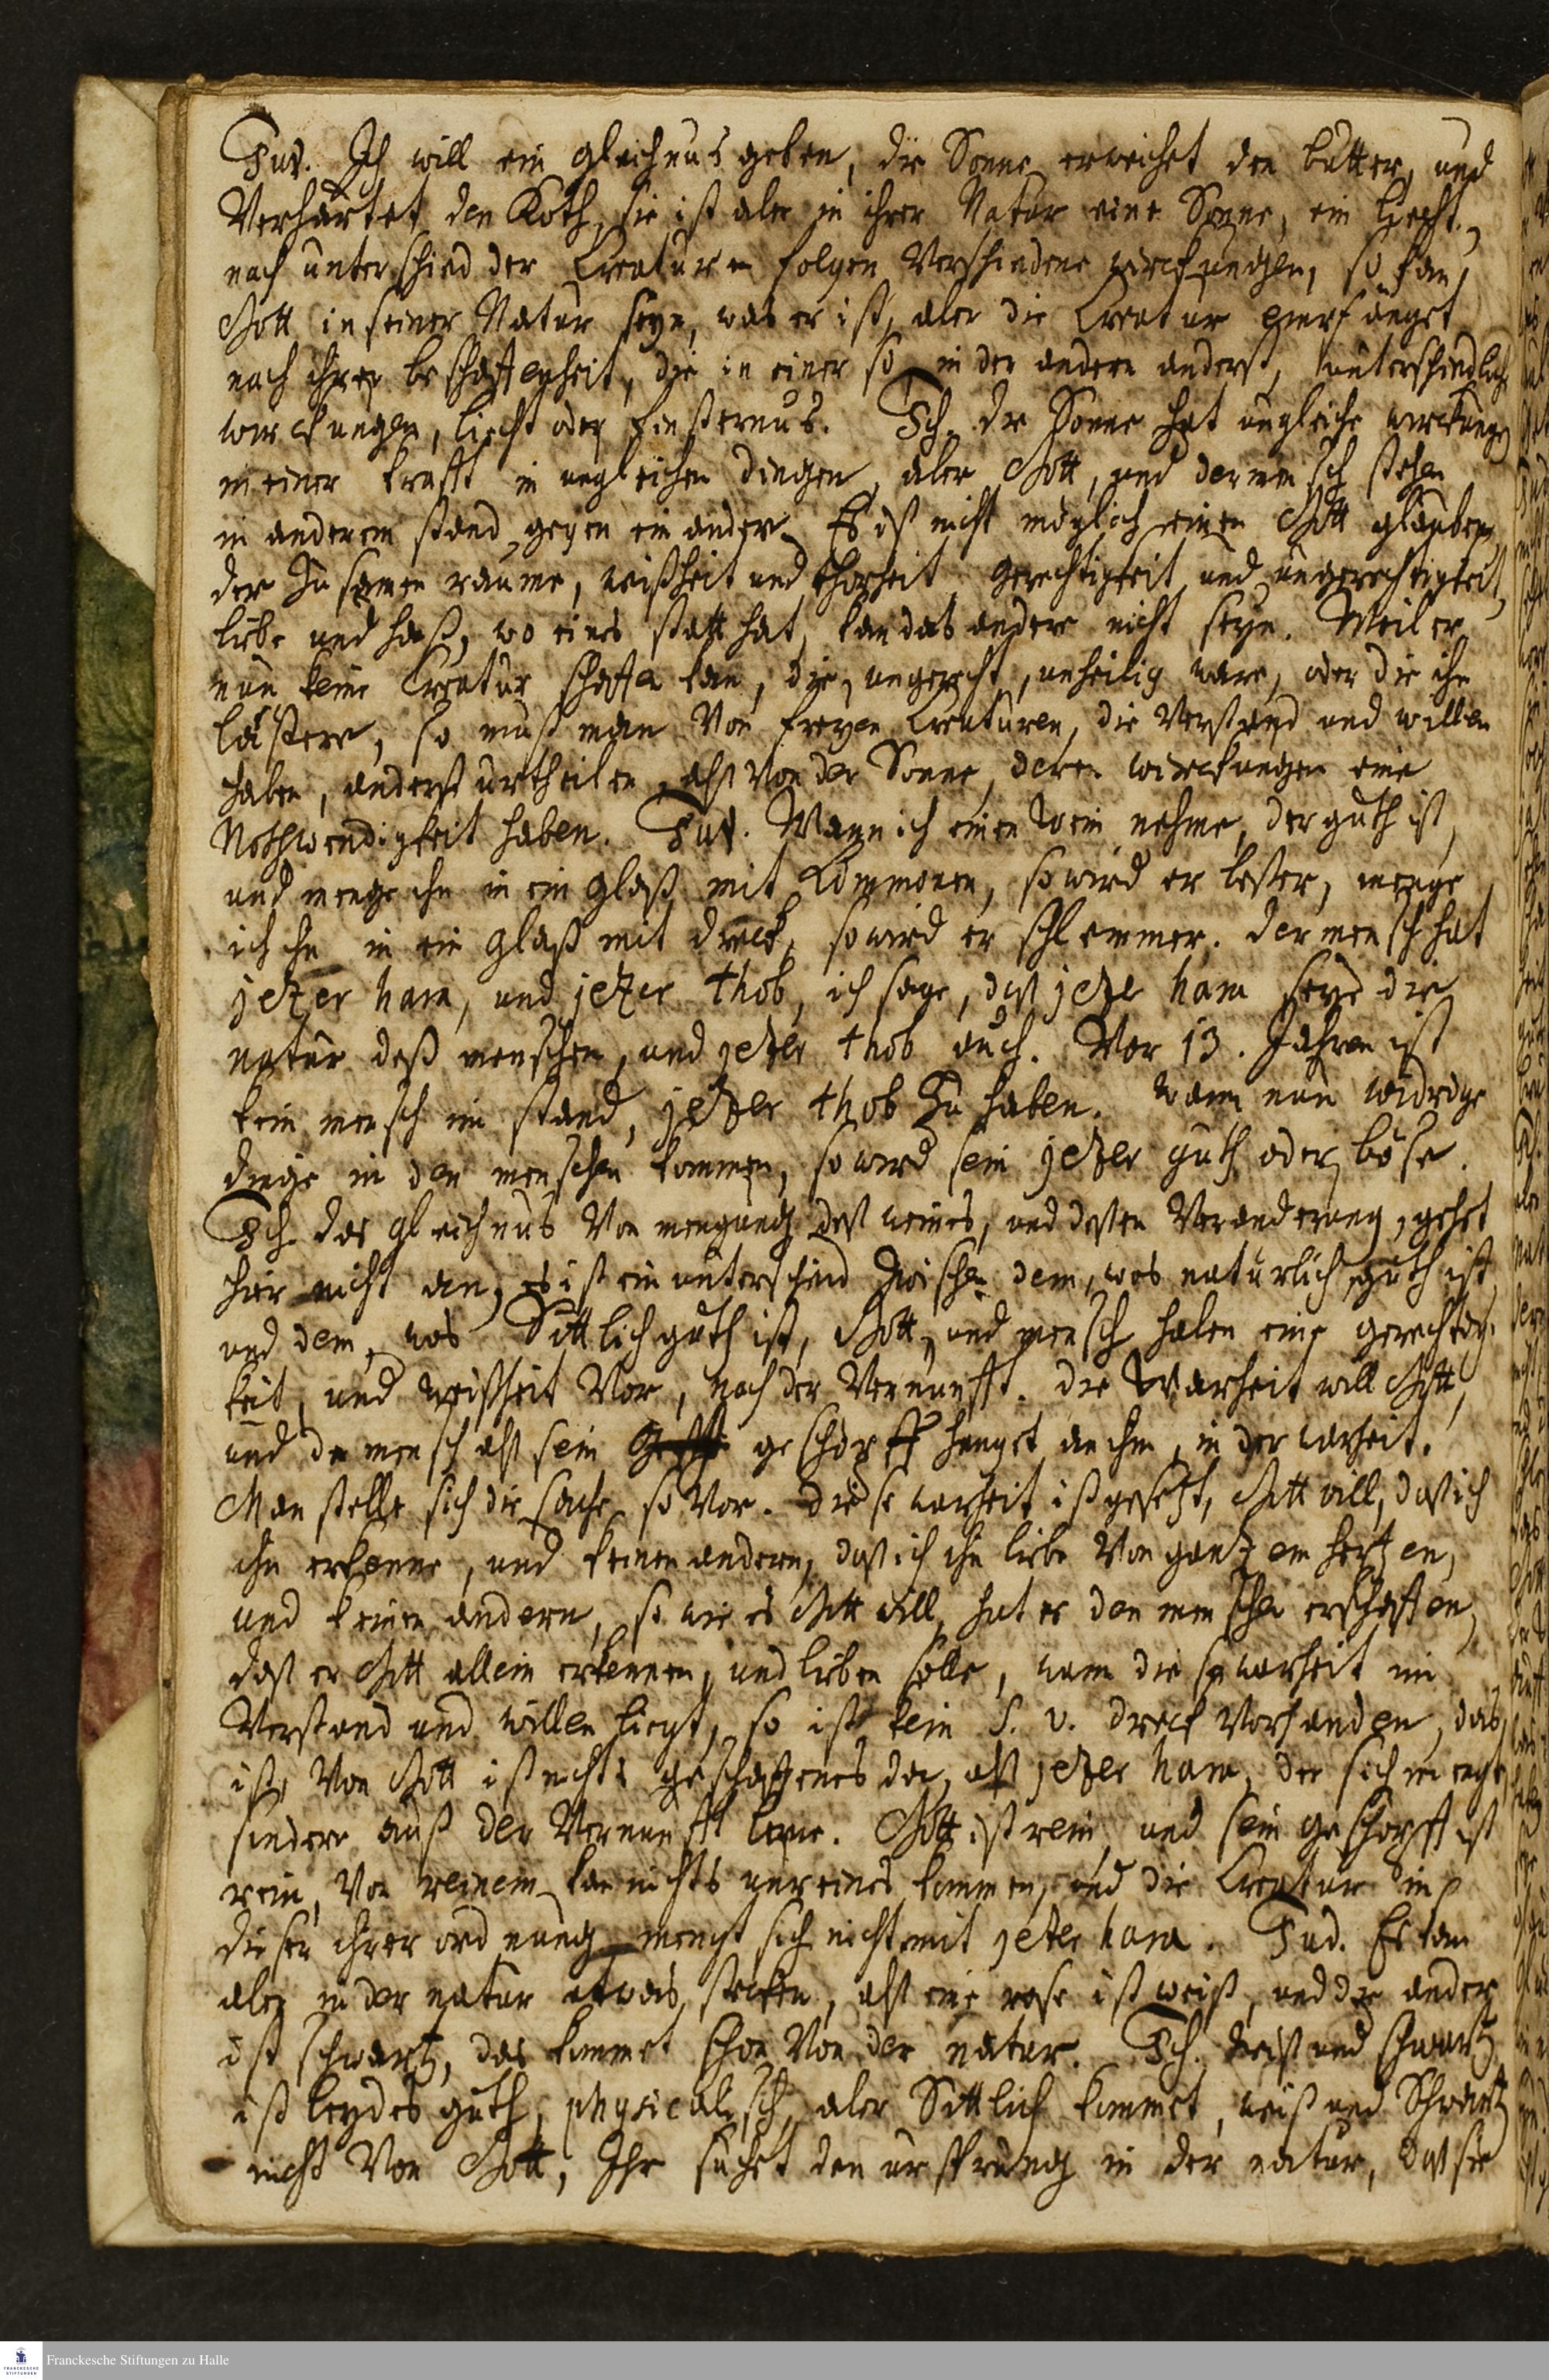 Jud. Ich will ein gleichnus geben, die Sonne erweichet den butter, und
Verhärtet den Koth, sie ist aber in ihrer Natur eine Sonne, ein Liecht,
nach unterschied der Creaturen folgen Verschiedene wirckungen, so kan
Gott in seiner Natur seyn, was er ist, aber die Creatur empfänget
nach ihrer beschaffenheit, die in einer so, in der andern anderst, unterschiedliche
wirckungen, liecht oder finsternus. Ich. die Sonne hat ungleiche wirckungen
in einer krafft in ungleichen dingen, aber Gott, und der mensch stehen
in anderem stand gegen einander. Es ist nicht möglich einen Gott glauben,
der zusamen raume, weißheit und thorheit, gerechtigkeit und ungerechtigkeit,
liebe und haß, wo eines statt hat, kan das andere nicht seyn. Weil er
nun keine Creatur schaffen kan, die ungerecht, unheilig ware, oder die ihn
lästere, so muß man Von freyen Creaturen, die Verstand und willen
haben, anderst urtheilen, alß Von der Sonne, deren wirckungen eine
Nothwendigkeit haben. Jud. Wann ich einen Wein nehme, der guth ist,
und menge ihn in ein glaß mit Limmonen, so wird er besser, menge
ich ihn in ein glaß mit dreck, so wird er schlimmer. der mensch hat
jezer hara, und jezer thob, ich sage, daß jezer hara seye die
natur deß menschen, und jezer thob auch. Vor 13. Jahren ist
kein mensch im stand, jezer thob zu haben. wann nun widrige
dinge in den menschen kommen, so wird sein jezer guth oder böse.
Ich. das gleichnus Von mengung deß weines, und dessen Veranderung, gehet
hier nicht an, es ist ein unterschied zwischen dem, was natürlich guth ist,
und dem, was Sittlich guth ist, Gott, und mensch haben eine gerechtig-
keit, und weißheit Vor, nach der Vernunfft. die Warheit will Gott,
und der mensch alß sein geschöpff hanget an ihm, in der warheit.
Man stelle sich die sache so Vor. Diese warheit ist gesetzt, Gott will, daß ich
ihn erkenne, und keinen andern, daß ich ihn liebe Von gantzem hertzen,
und keinen andern, so wie es Gott will, hat er den menschen erschaffen,
daß er Gott allein erkennen, und lieben solle, wann diese warheit im
Verstand und willen liegt, so ist kein S. v. dreck Vorhanden, das
ist, Von Gott ist nichts geschaffenes da, alß jezer hara, der sich menge,
sondern auß der Vernunfft lerne. Gott ist rein, und sein geschöpff ist
rein, Von reinem kan nichts unreines kommen, und die Creatur in
dieser ihrer ordnung mengt sich nicht mit jezer hara. Jud. Es kan
aber in der natur etwas stecken, alß eine rose ist weiß, und die ander
ist schwartz, das kommet schon Von der natur. Ich. Weiß und schwartz
ist beydes guth, physicalisch, aber Sittlich kommet, weiß und Schwartz
nicht Von Gott, Ihr suchet den ursprung in der natur, daß sie
Franckesche Stiftungen zu Halle